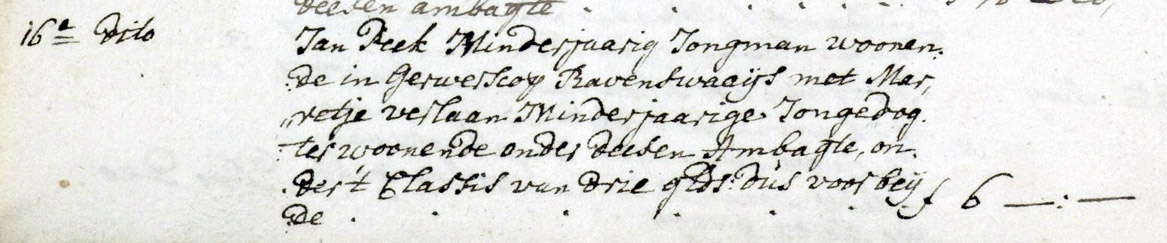 deesen ambagte
16e Dito Jan Peek Minderjaarig Jongman woonen,
de in Gerwerscop Ravenswaaijs met Mar,
retje verlaan Minderjaarige Jongedog,
ter woonende onder deesen Ambagte, on,
der 't Classis van drie glds: dus voor beij f 6 — : —
de